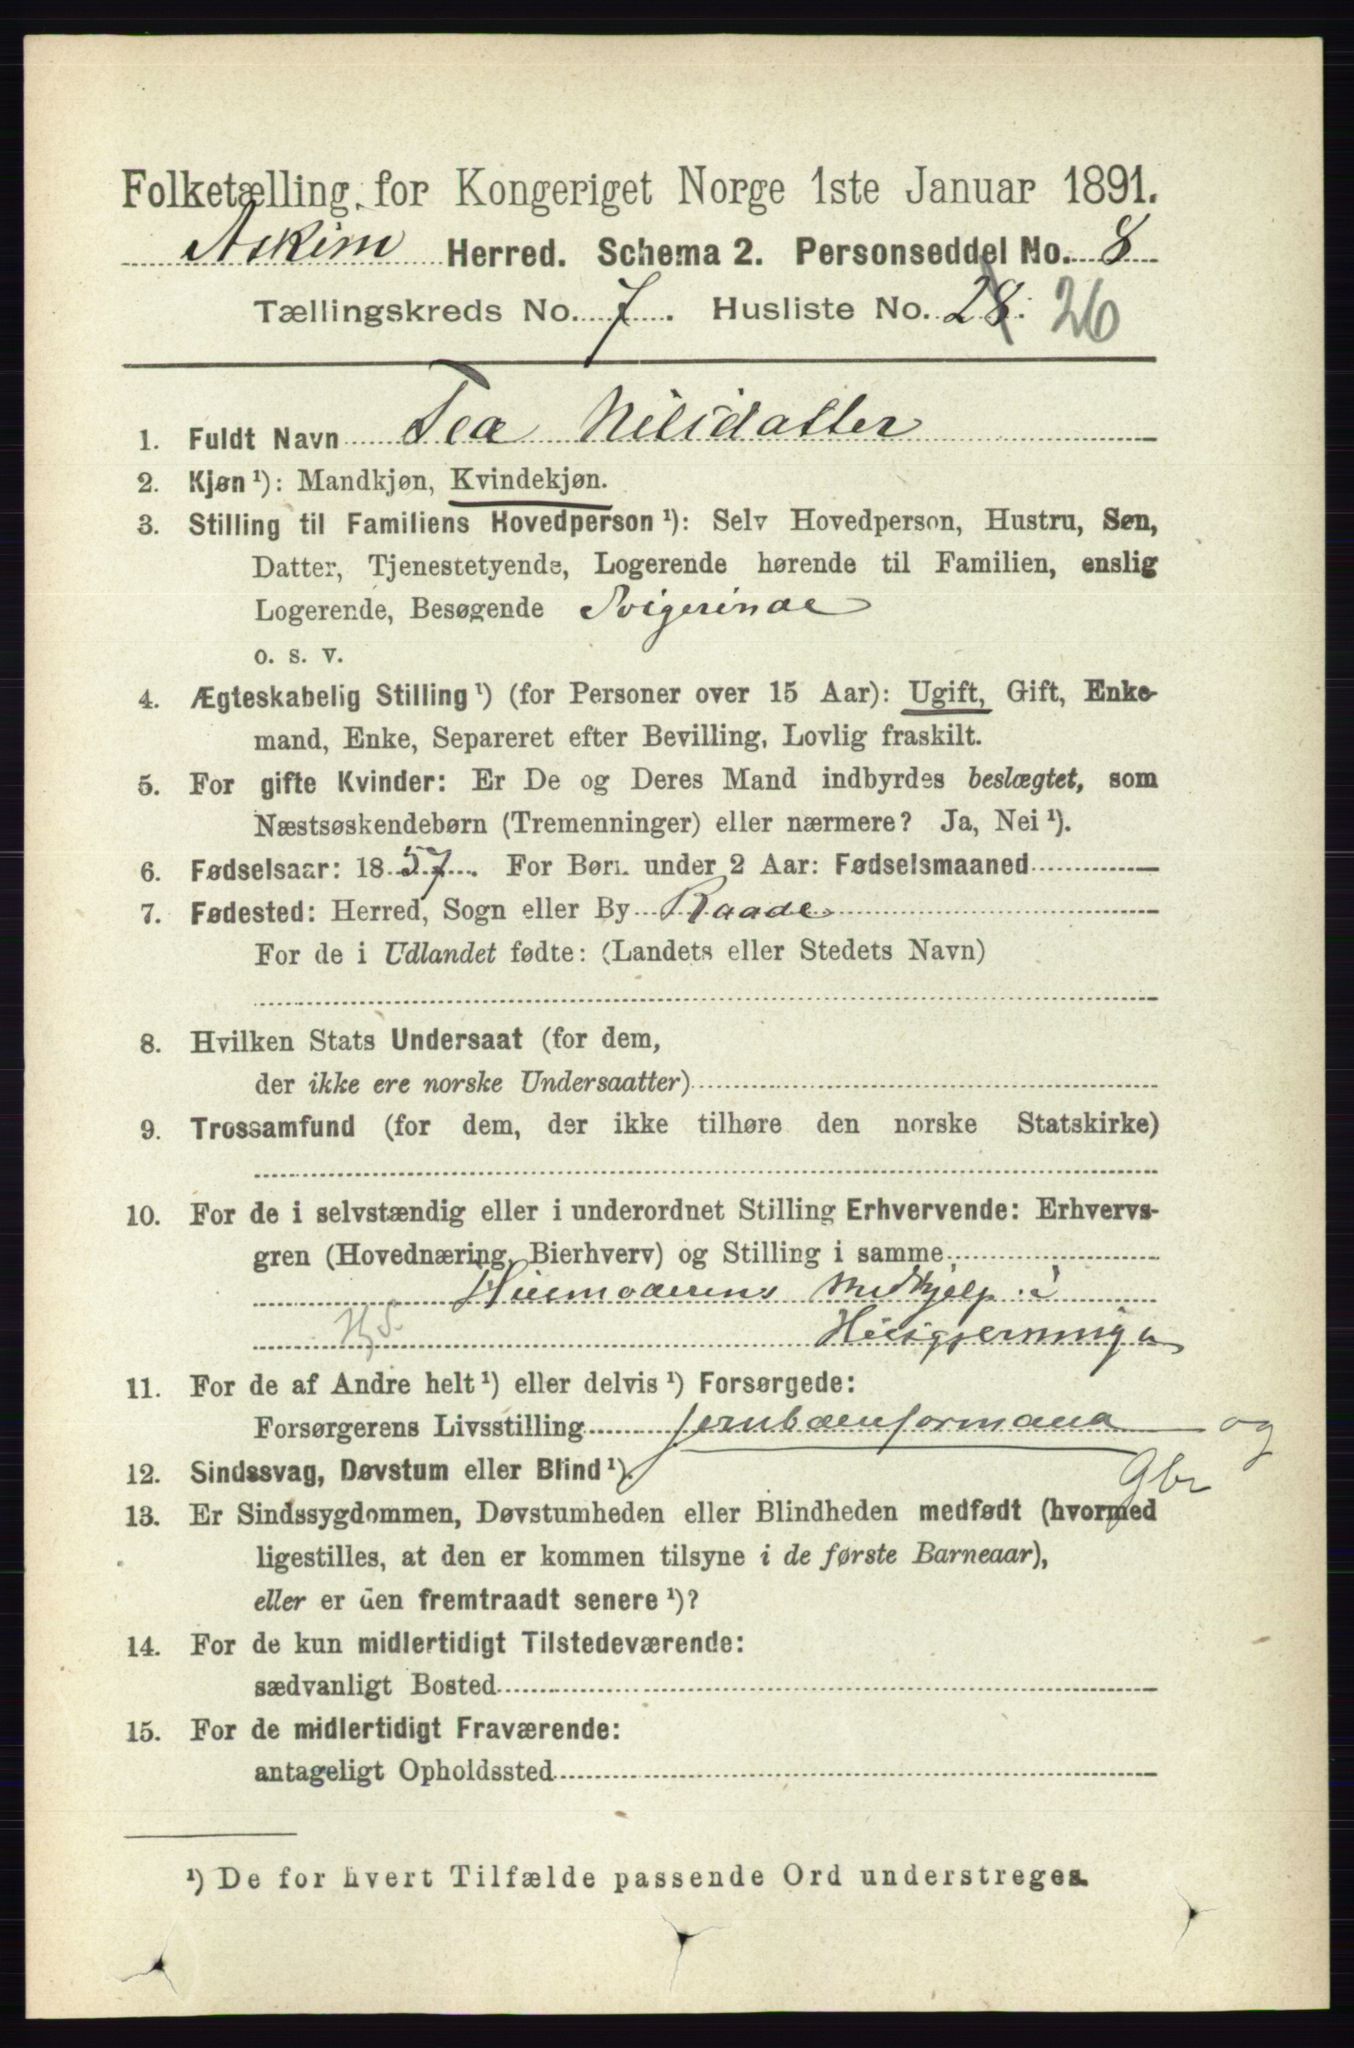 Folketælling for Kongeriget Norge 1ste Januar 1891.
Askim Herred. Schema 2. Personseddel No. 8
Tællingskreds No. 7. Husliste No. 28. 26
1. Fuldt Navn Tea Nilsdatter
2. Kjøn ¹): Mandkjøn, Kvindekjøn.
3. Stilling til Familiens Hovedperson ¹): Selv Hovedperson, Hustru, Søn,
Datter, Tjenestetyende, Logerende hørende til Familien, enslig
Logerende, Besøgende Svigerinde
o. s. v.
4. Ægteskabelig Stilling ¹) (for Personer over 15 Aar): Ugift, Gift, Enke-
mand, Enke, Separeret efter Bevilling, Lovlig fraskilt.
5. For gifte Kvinder: Er De og Deres Mand indbyrdes beslægtet, som
Næstsøskendebørn (Tremenninger) eller nærmere? Ja, Nei ¹).
6. Fødselsaar: 1857. For Børn under 2 Aar: Fødselsmaaned
7. Fødested: Herred, Sogn eller By Raade
For de i Udlandet fødte: (Landets eller Stedets Navn)
8. Hvilken Stats Undersaat (for dem,
der ikke ere norske Undersaatter)
9. Trossamfund (for dem, der ikke tilhøre den norske Statskirke)
10. For de i selvstændig eller i underordnet Stilling Erhvervende: Erhvervs-
gren (Hovednæring, Bierhverv) og Stilling i samme
Huusmoderens Medhjelp i
Huusgjerninga
11. For de af Andre helt ¹) eller delvis ¹) Forsørgede:
Forsørgerens Livsstilling Jernbaneformand og
Gbr
12. Sindssvag, Døvstum eller Blind ¹).
13. Er Sindssygdommen, Døvstumheden eller Blindheden medfødt (hvormed
ligestilles, at den er kommen tilsyne i de første Barneaar),
eller er den fremtraadt senere ¹)?
14. For de kun midlertidigt Tilstedeværende:
sædvanligt Bosted
15. For de midlertidigt Fraværende:
antageligt Opholdssted
¹) De for hvert Tilfælde passende Ord understreges.